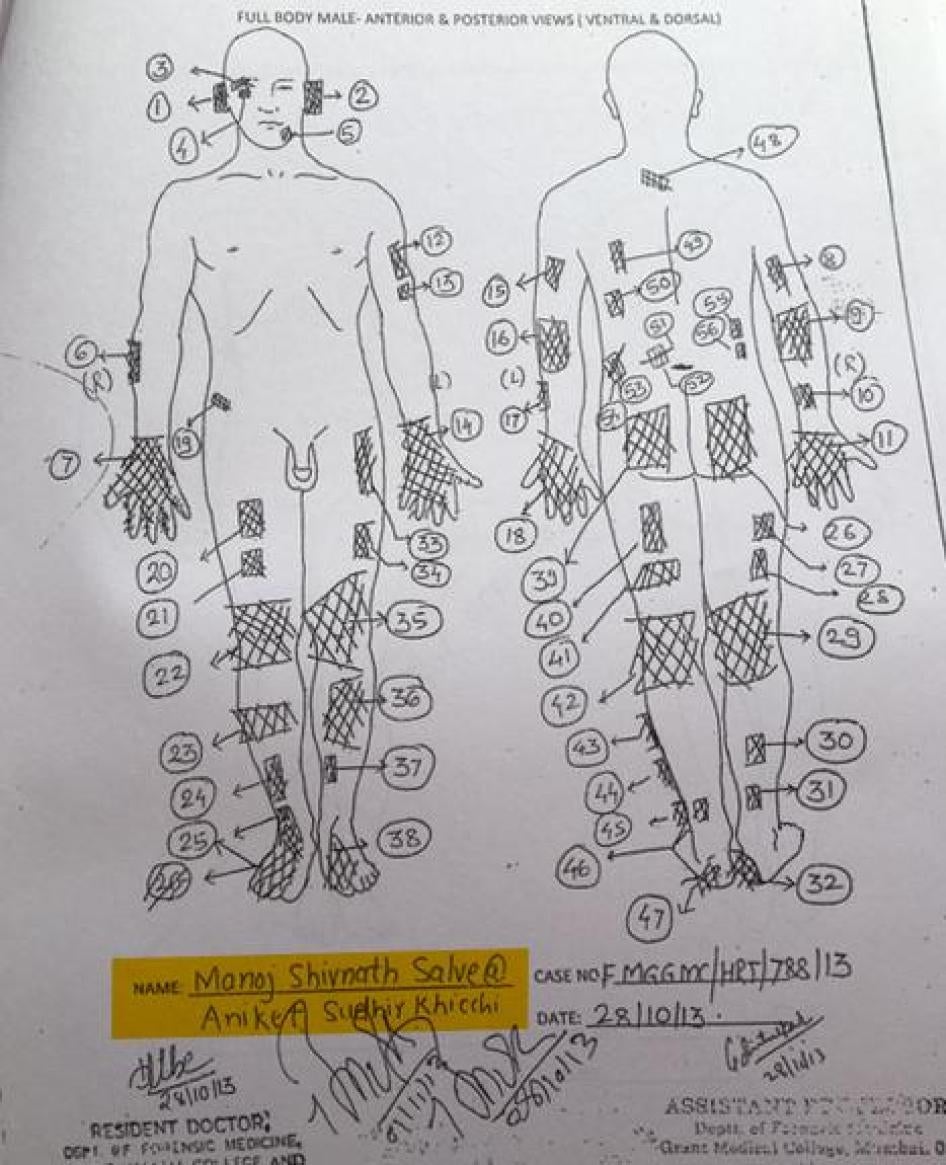 FULL BODY MALE- ANTERIOR & POSTERIOR VIEWS ( VENTRAL & DORSAL)
3
1
2
4
5
48
12
13
15
49
50
8
16
51
55
56
9
6
(R)
(L)
(L)
(R)
17
53
52
54
10
7
19
14
18
11
20
33
34
39
26
27
21
40
28
35
41
29
22
42
36
23
43
30
24
37
44
31
25
38
45
26
46
32
47
NAME: Manoj Shivnath Salve @
Aniket Sudhir Khicchi
CASE NO F MGGMC/HRT/788/13
DATE: 28/10/13.
28/10/13
28/10/13
RESIDENT DOCTOR,
DEPT. OF FORENSIC MEDICINE,
COLLEGE AND
ASSISTANT PROFESSOR
Dept. of Forensic Medicine
Grant Medical College, Mumbai.